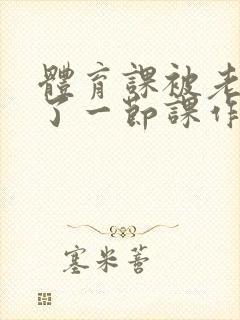 體育課被老
了一節課作
塞米蒈